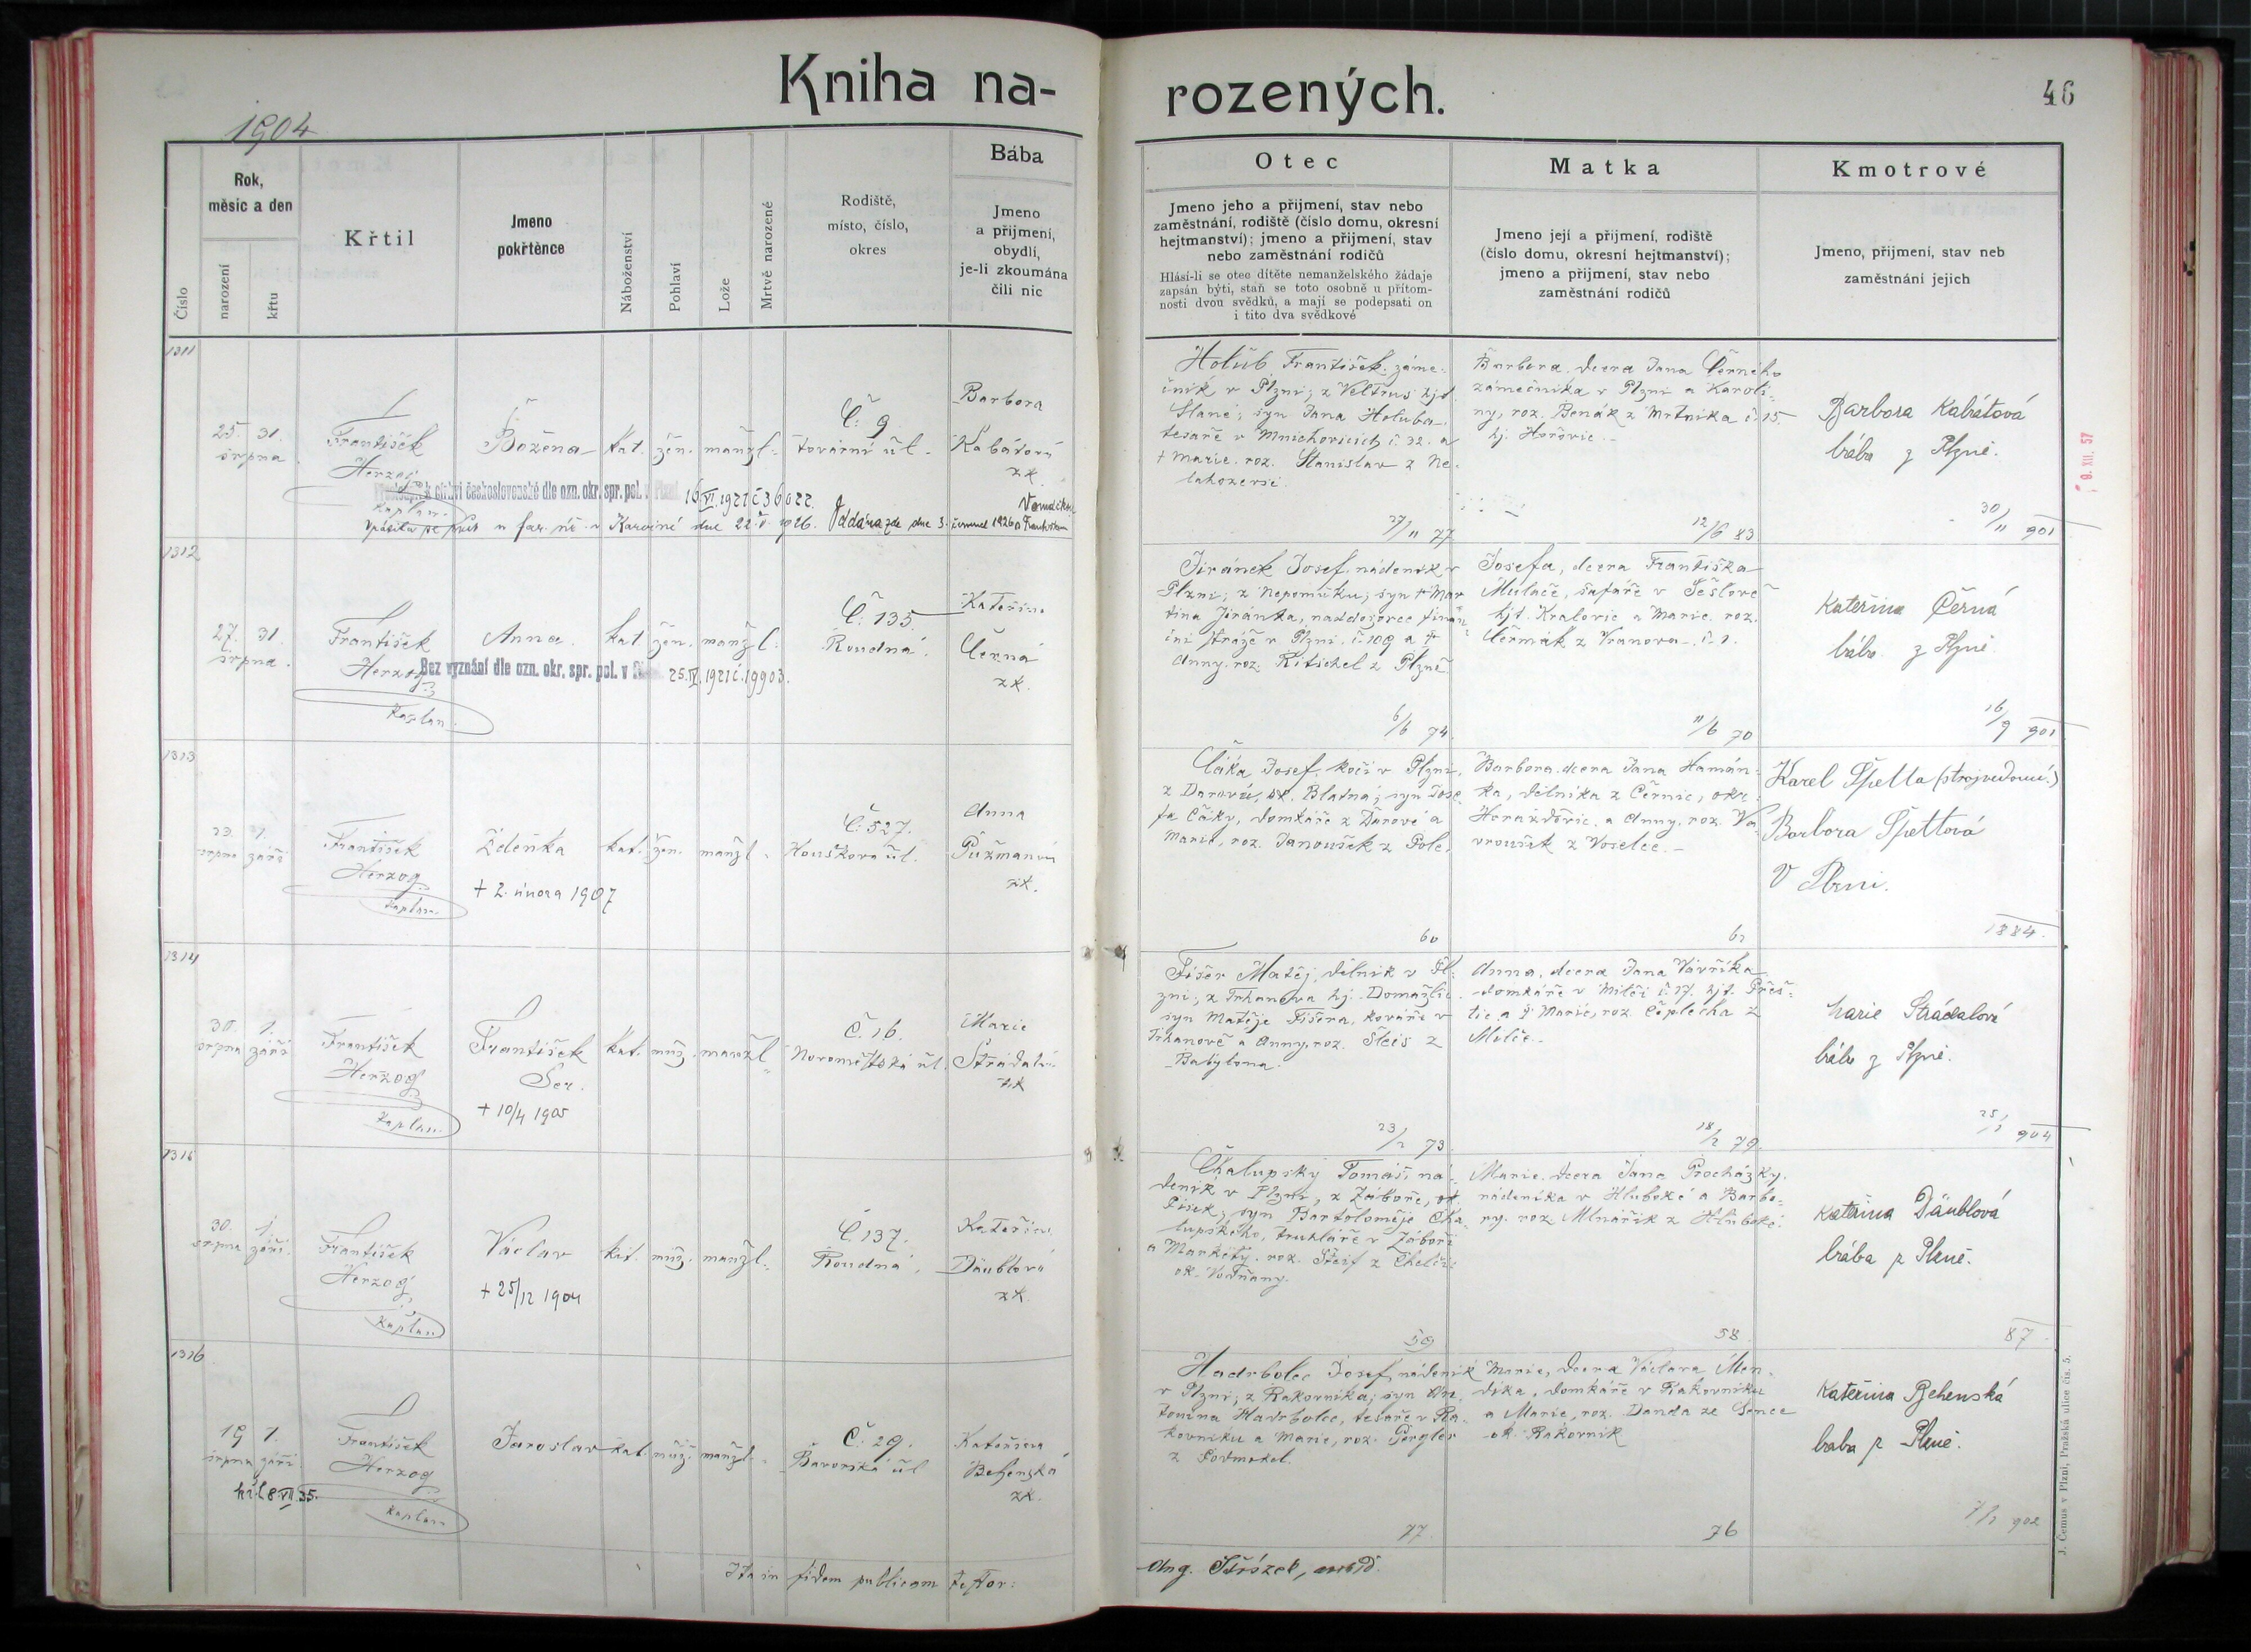 Kniha na-
rozených.
46
1904
Číslo
Rok,
měsíc a den
narození
křtu
Křtil
Jmeno
pokřtěnce
Náboženství
Pohlaví
Lože
Mrtvě narozené
Rodiště,
místo, číslo,
okres
Bába
Jmeno
a příjmení,
obydlí,
je-li zkoumána
čili nic
Otec
Jmeno jeho a příjmení, stav nebo
zaměstnání, rodiště (číslo domu, okresní
hejtmanství); jmeno a příjmení, stav
nebo zaměstnání rodičů
Hlásí-li se otec dítěte nemanželského žádaje
zapsán býti, staň se toto osobně u přítom-
nosti dvou svědků, a mají se podepsati on
i tito dva svědkové
Matka
Jmeno její a příjmení, rodiště
(číslo domu, okresní hejtmanství);
jmeno a příjmení, stav nebo
zaměstnání rodičů
Kmotrové
Jmeno, příjmení, stav neb
zaměstnání jejich
1311
25. 31.
srpna
František
Herzog
kaplan
Božena
kat. žen. manžl.
Č. 9
tovární ul.
Barbora
Kabátová
zk.
k církvi československé dle ozn. okr. spr. pol. v 16.VI.1921 č 36022.
Vrátila se v Karviné dne 22. V. 1926. Oddána zde dne 3. července 1926
Holub František, záme-
čník v Plzni; z Veltrus hjt.
Slané; syn Jana Holuba
tesaře v Mnichovicích č. 32. a
† Marie, roz. Stanislav z Ne-
lahozevsi.
27/11 77
Barbora, dcera Jana Černého
zámečníka v Plzni a Karoli-
ny, roz. Benák z Mrtníka č. 15.
hj. Hořovic.
12/6 83
Barbora Kabátová
bába z Plzně.
30/11 901
9. XII. 57
1312
27. 31.
srpna
František
Herzog
kaplan
Anna
kat. žen. manžl.
Č. 135
Roudná.
Kateřina
Černá
zk.
Bez vyznání dle ozn. okr. spr. pol. v 25.IV.1921 č. 19903.
Jiránek Josef, nádeník v
Plzni; z Nepomuku; syn † Mar-
tina Jiránka, naddozorce finan-
ční stráže v Plzni č. 109 a †
Anny, roz. Kitschel z Plzně.
6/6 74
Josefa, dcera Františka
Mulače, šafáře v
hjt. Kralovic a Marie, roz.
Čermák z Vranova č. 1.
11/6 70
Kateřina Černá
bába z Plzně.
16/9 901
1313
23. 1.
srpna září
František
Herzog
kaplan
Zdeňka
† 2. února 1907
kat. žen. manžl.
Č. 527.
Houškova ul.
Anna
Pužmanová
zk.
Čáka Josef, kočí v Plzni,
ok. Blatná; syn Jose-
fa Čáky, domkáře z a
Marie, roz. Janoušek z Pole.
60
Barbora, dcera Jana Hamán-
ka, dělníka z Černic, okr.
Horažďovic a Anny, roz. Va-
vroušek z Voselec.
62
Karel Špetta (strojvedoucí)
Barbora Špettová
V Plzni.
1884.
1314
30. 1.
srpna září
František
Herzog
kaplan
František
Ser.
† 10/4 1905
kat. muž. manžl.
Č. 16.
Novoměstská ul.
Marie
Strádalová
zk
Fišer Matěj, dělník v Pl-
zni; z Trhanova hj. Domažlic
syn Matěje Fišera, kováře v
Trhanově a Anny, roz. Šleis z
Babylona.
23/2 73
Anna, dcera Jana Vavříka
domkáře v Milči č. 17. hjt. Přeš-
tic a † Marie, roz. Čeplecha z
Milče.
18/2 79
Marie Strádalová
bába z Plzně.
25/1 904
1315
30. 1.
srpna září
František
Herzog
kaplan
Václav
† 25/12 1904
kat. muž. manžl.
Č. 137.
Roudná.
Kateřina
Däublová
zk.
Chalupský Tomáš, ná-
deník v Plzni, z Záboře, ok.
Písek; syn Bartoloměje Cha-
lupského, truhláře v Záboří
a Markéty, roz. Šteif z Chelčic
ok. Vodňany.
59
Marie, dcera Jana Procházky,
nádeníka v Hluboké a Barbo-
ry, roz. Mlnařík z Hluboké.
58
Kateřina Däublová
bába z Plzně.
87
1316
19 1.
srpna září
8.VII.35.
František
Herzog
kaplan
Jaroslav
kat. muž. manžl.
Č. 29.
Bavorská ul
Kateřina
Behenská
zk.
Hadrbolec Josef, nádeník
v Plzni; z Rakovníka; syn An-
tonína Hadrbolce, tesaře v Ra-
kovníku a Marie, roz. Pergler
z Podmokel.
77
Marie, dcera Václava Men-
díka, domkáře v Rakovníku
a Marie, roz. Danda ze Senec
ok. Rakovník
76
Kateřina Behenská
baba z Plzně.
7/1 902
Ita in fidem publicam testor:
Ang.
J. Čemus v Plzni, Pražská ulice čís. 5.